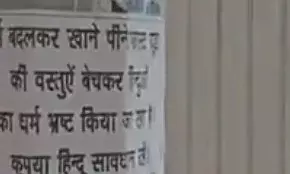 बदलकर खाने पीने
की वस्तुऐं बेचकर
का धर्म भ्रष्ट किया
कृपया हिन्दू सावधान